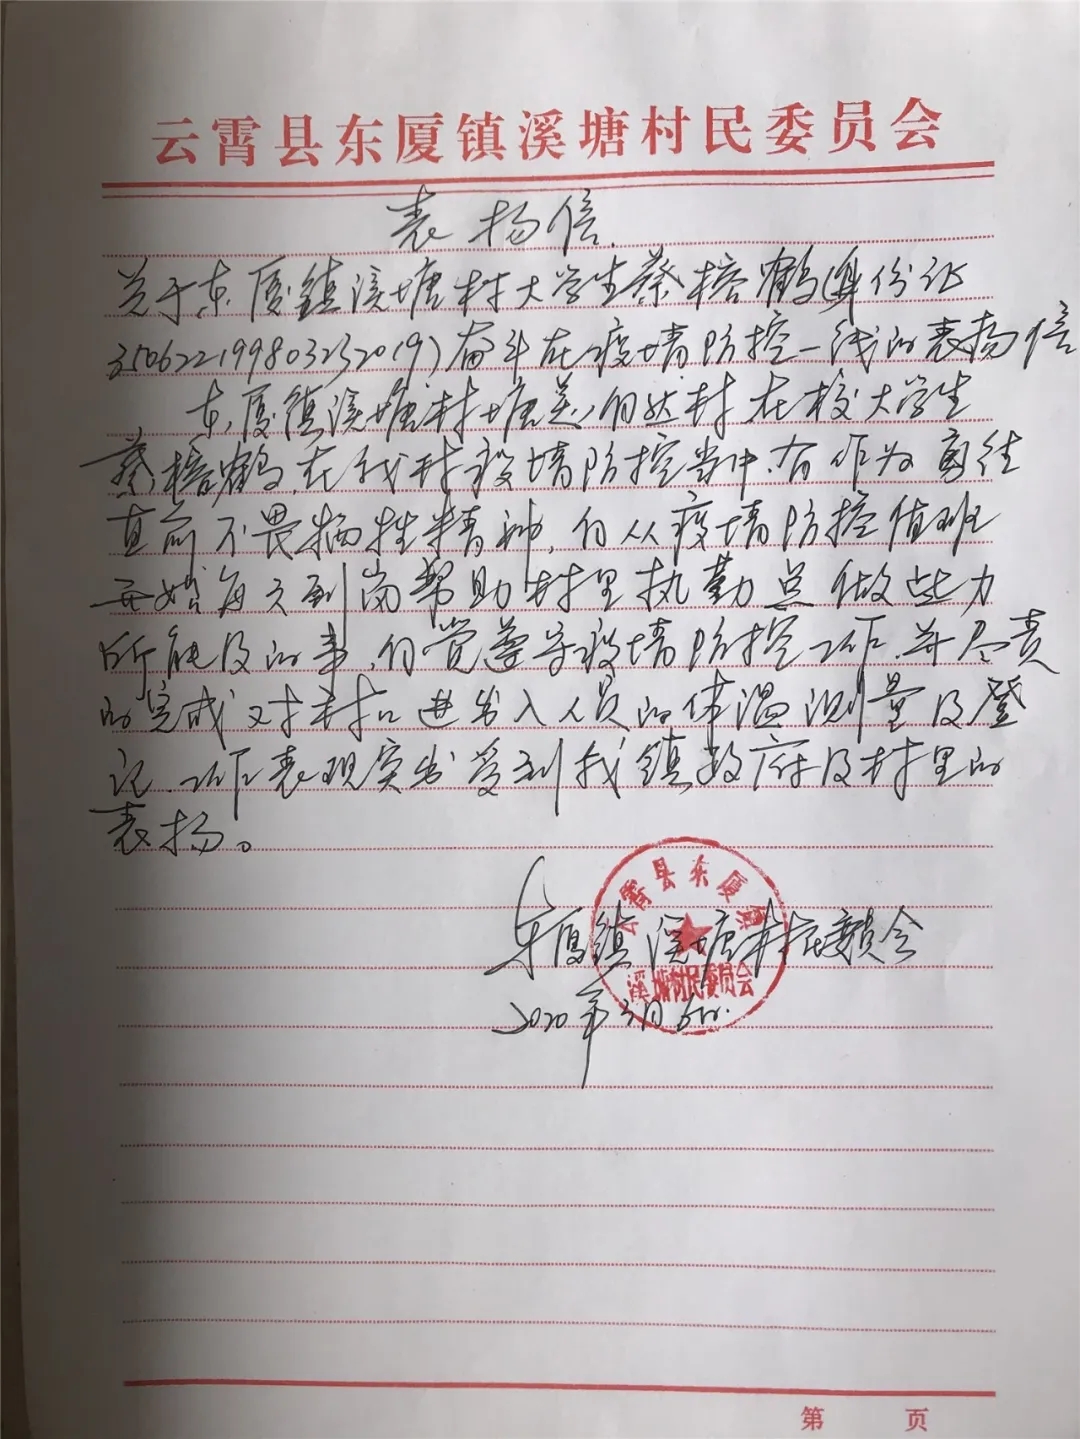 云霄县东厦镇溪塘村民委员会
表扬信
关于东厦镇溪塘村大学生蔡榕鹤(身份证
350622199803232019)奋斗在疫情防控一线的表扬信
东厦镇溪塘村塘美自然村在校大学生
蔡榕鹤,在我村疫情防控当中,有作为勇往
直前不畏牺牲精神,自从疫情防控值班
开始每天到岗帮助村里执勤点做些力
所能及的事,自觉遵守疫情防控工作,并尽责
的完成对村口进出入人员的体温测量及登
记,工作表现突出受到我镇政府及村里的
表扬。
东厦镇溪塘村民委员会
2020年3月6日.
云霄县东厦镇
溪塘村民委员会
第 页